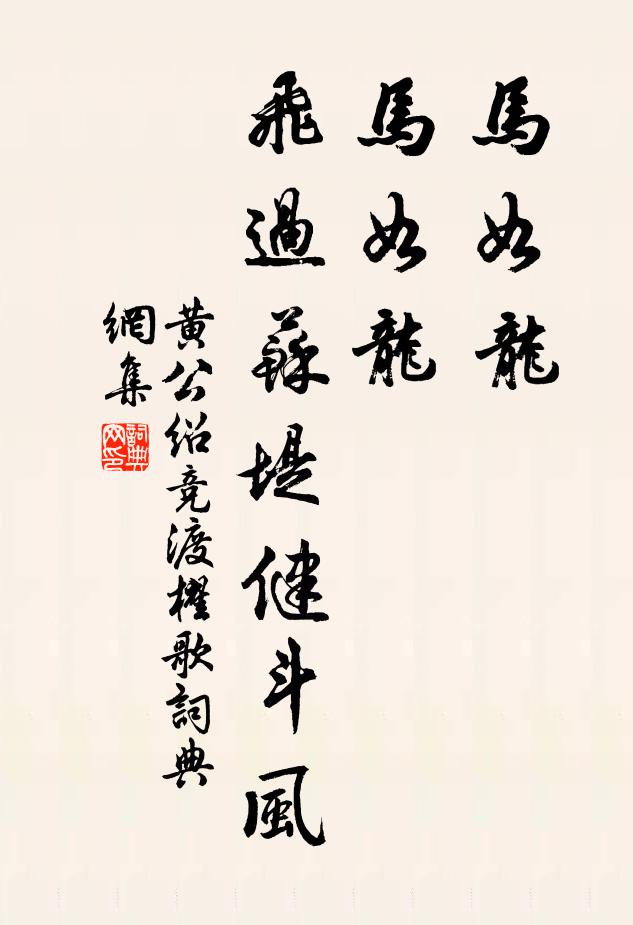 馬如龍
馬如龍
飛過蘇堤健斗風
黃公紹競渡櫂歌詞典
網集
詞典
网印